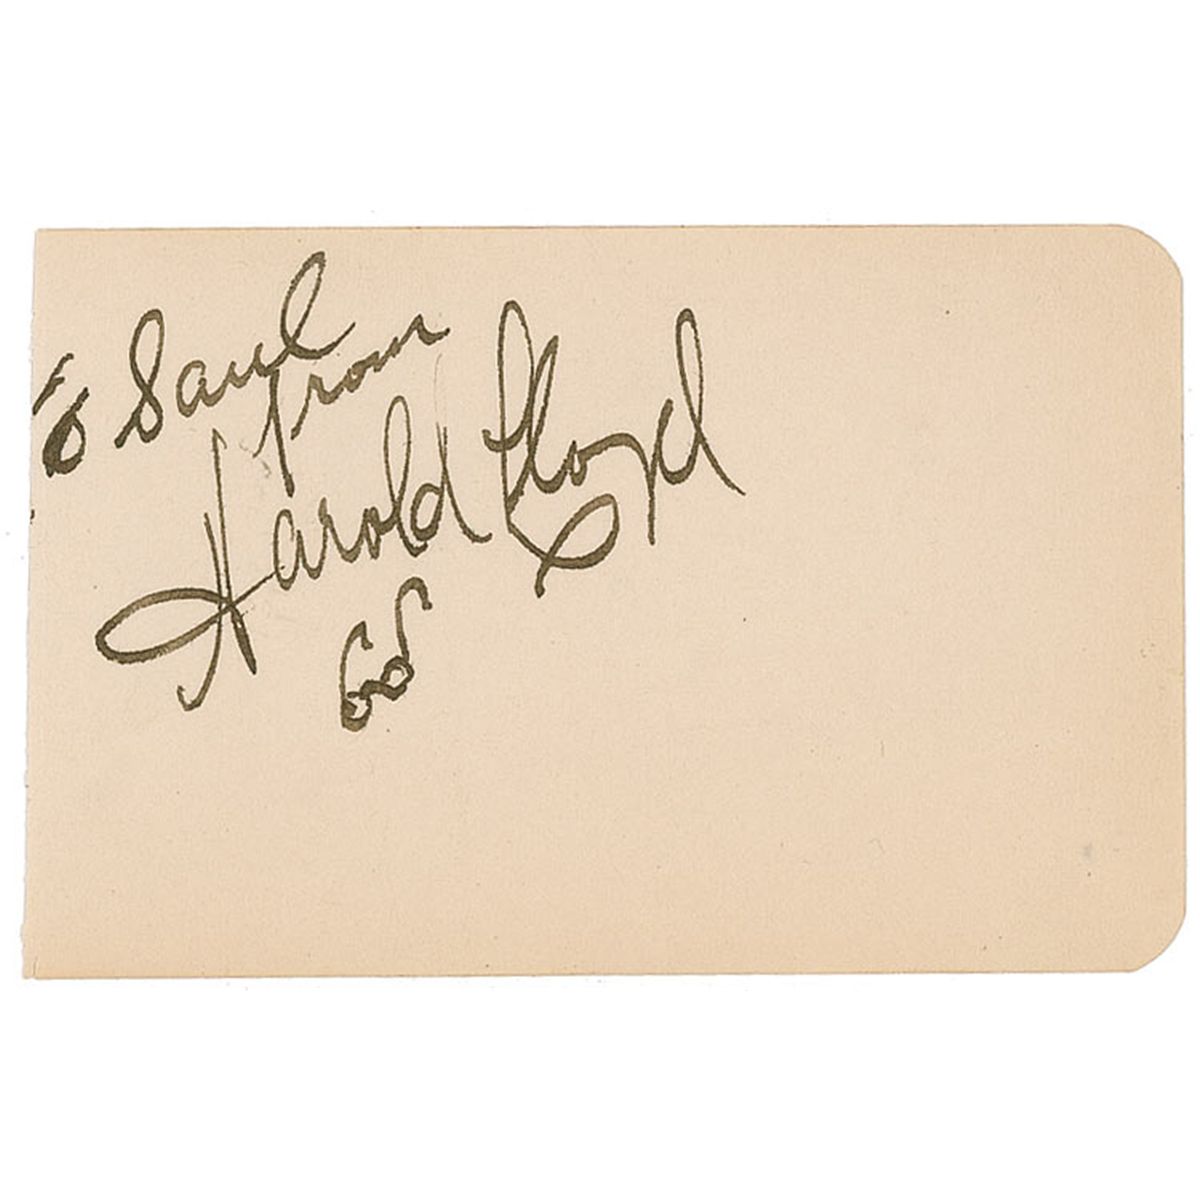 To Saul
from
Harold Lloyd